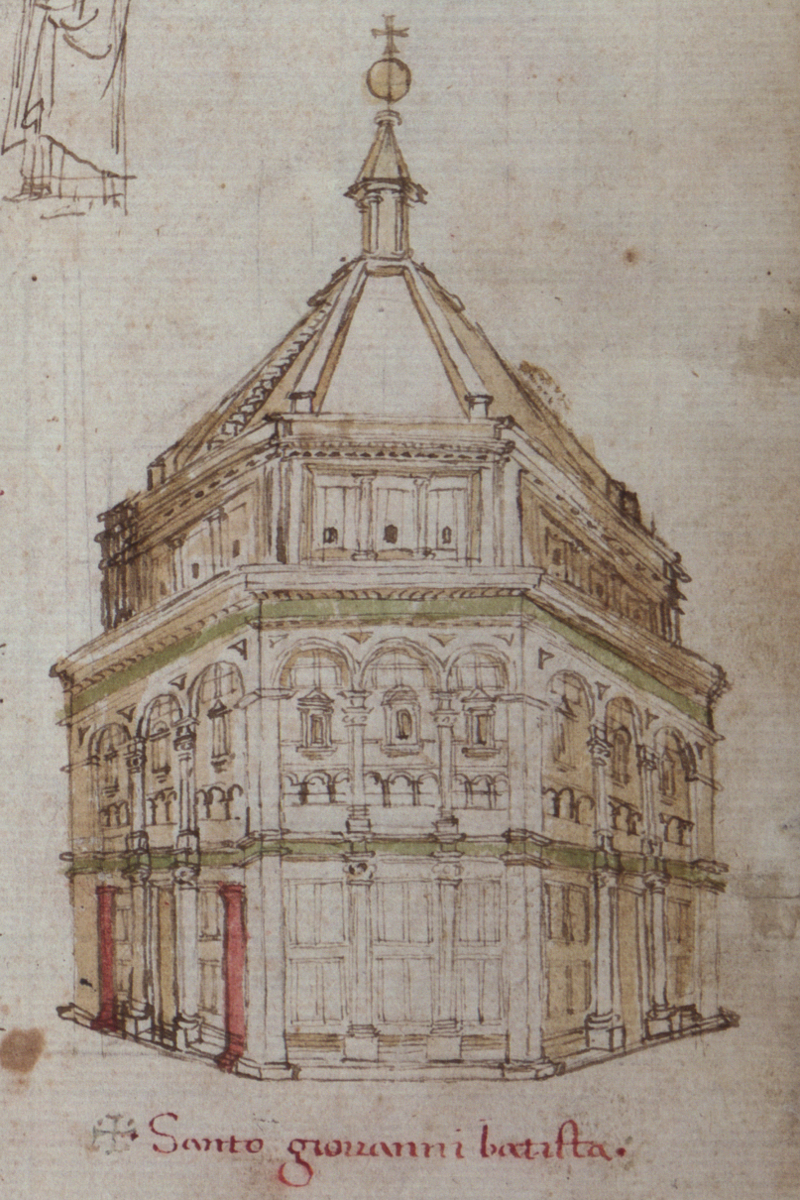 ✠ Santo giouanni batista.